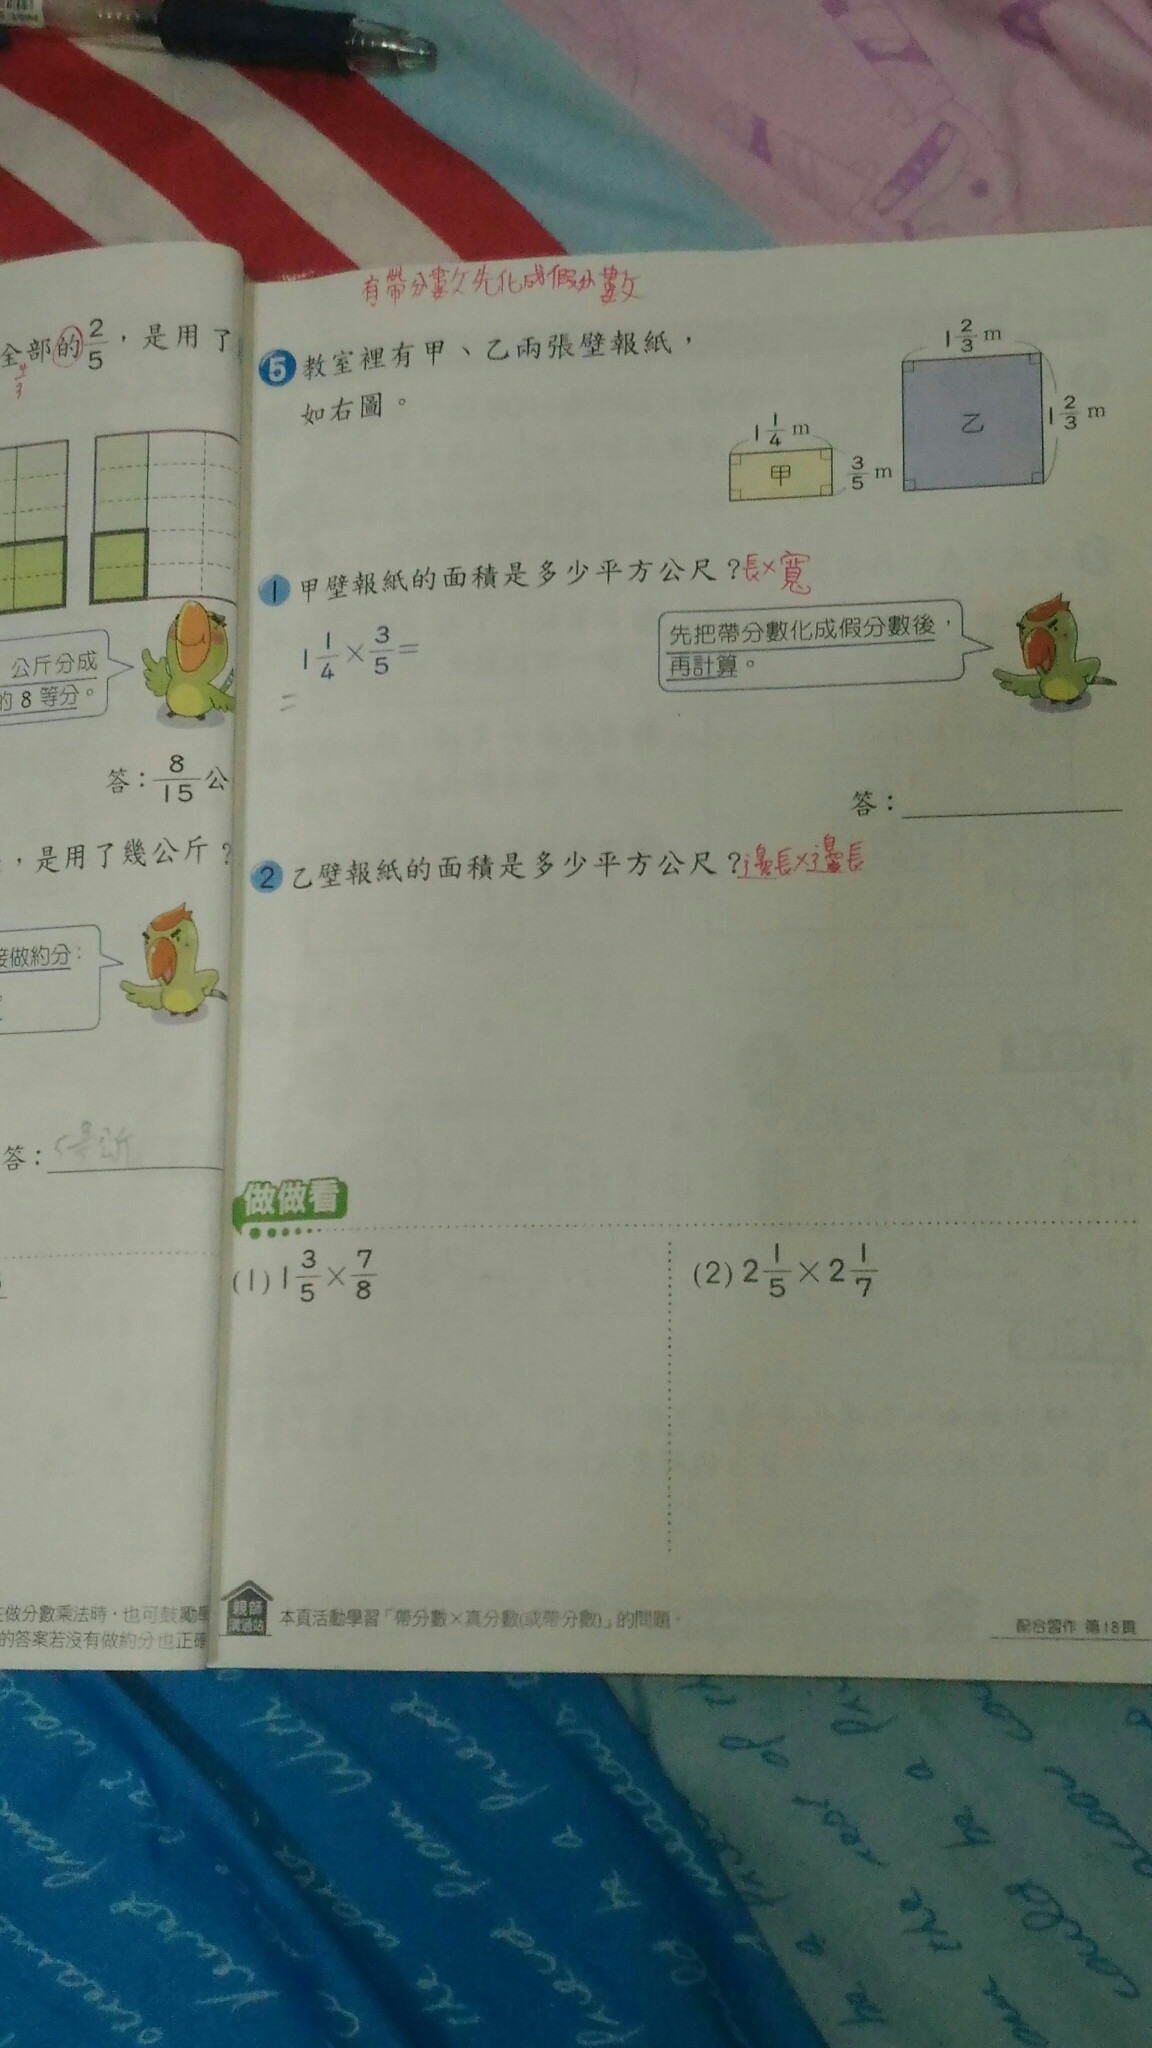 全部的2/5,是用了
4/3
公斤分成
的8等分。
答:8/15公
,是用了幾公斤?
接做約分:
答:
在做分數乘法時,也可鼓勵學
的答案若沒有做約分也正確
有帶分數先化成假分數
5 教室裡有甲、乙兩張壁報紙,
如右圖。
1 1/4 m
甲
3/5 m
1 2/3 m
乙
1 2/3 m
1 甲壁報紙的面積是多少平方公尺?長×寬
1 1/4 × 3/5 =
=
先把帶分數化成假分數後,
再計算。
答:
2 乙壁報紙的面積是多少平方公尺?邊長×邊長
做做看
(1) 1 3/5 × 7/8
(2) 2 1/5 × 2 1/7
親師
溝通站
本頁活動學習「帶分數×真分數(或帶分數)」的問題。
配合習作 第18頁